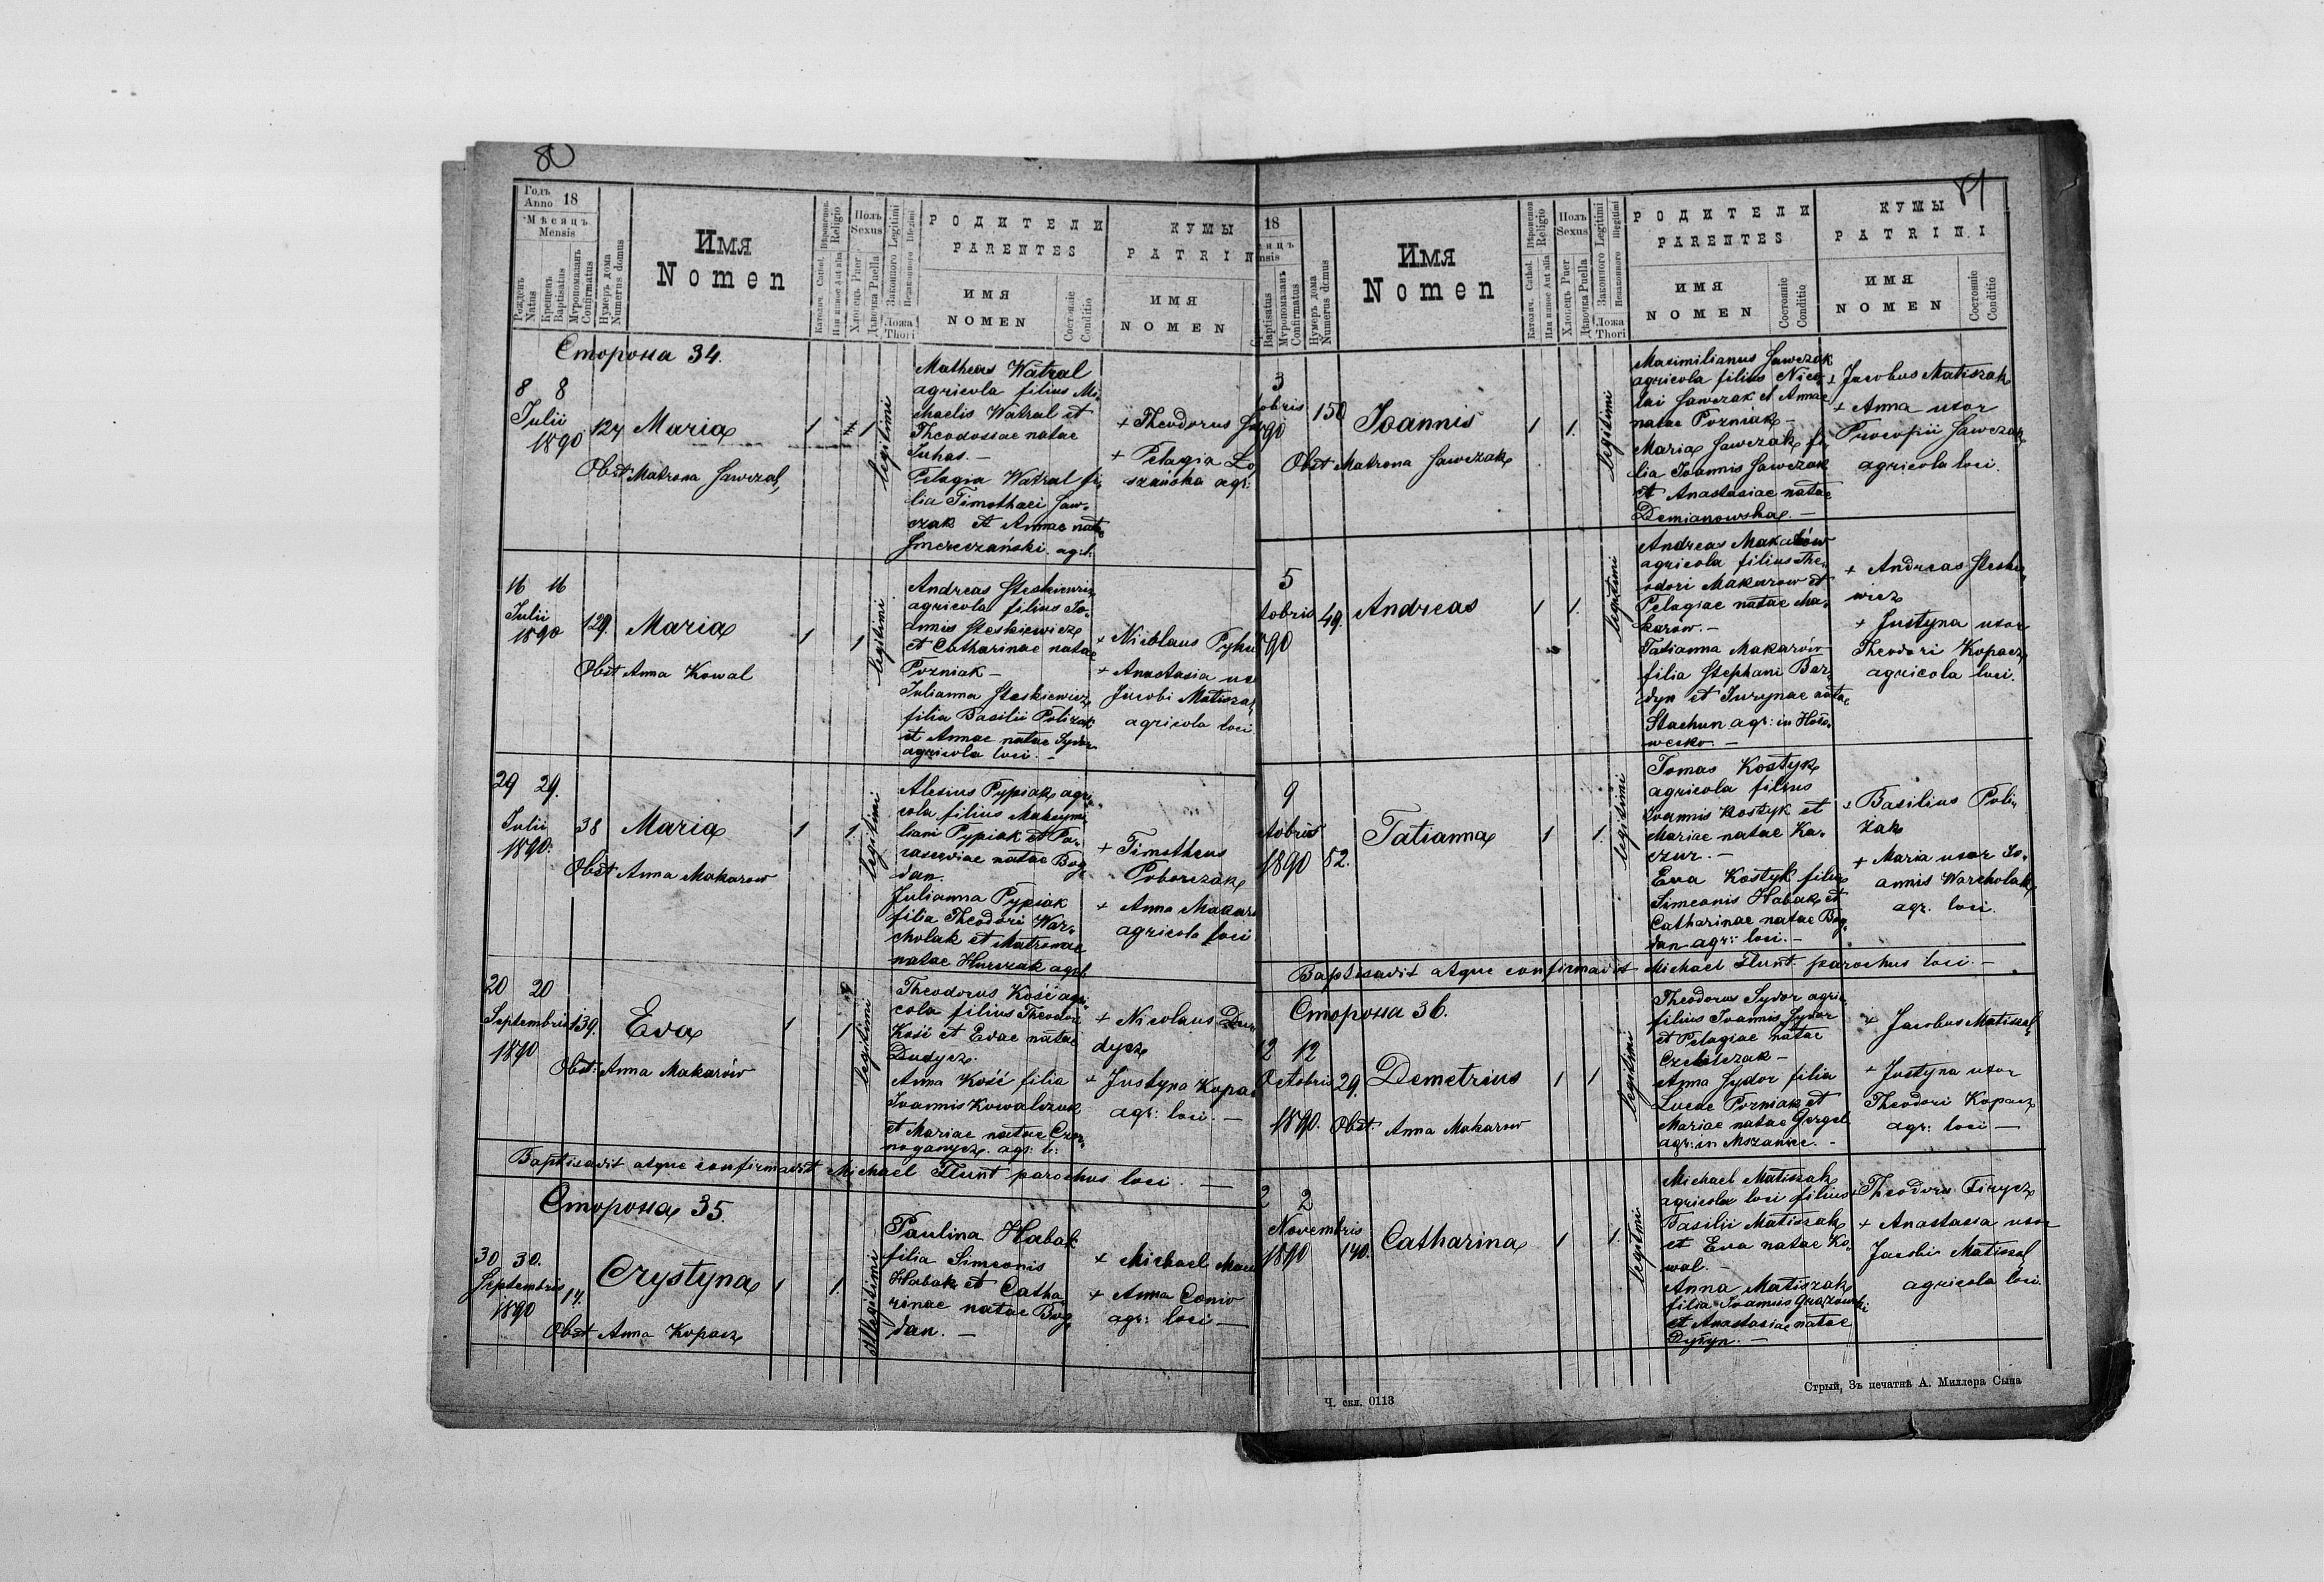 80
Годъ Anno 18
Мѣсяцъ Mensis
Рожденъ Natus
Крещенъ Baptisatus
Муропомазанъ Confirmatus
Нумеръ дома Numerus domus
Имя
Nomen
Религіо Religio
Католич. Cathol.
Или инное Aut alia
Полъ Sexus
Хлопецъ Puer
Дѣвочка Puella
Законного Legitimi
Незаконного Illegitimi
Ложа Thori
РОДИТЕЛИ
PARENTES
ИМЯ
NOMEN
Состояніе Conditio
КУМЫ
PATRIN
ИМЯ
NOMEN
Сторона 34.
8 8
Julii
1890
127
Maria
1 1
legitimi
Obst Matrona Sawczak
Matheas Watral
agricola filius Mi-
chaelis Watral et
Theodosiae natae
Juhas. —
Pelagia Watral fi-
lia Timothaei Saw-
czak et Annae natae
Smereczański agr. l.
+ Theodorus
+ Pelagia Lo
szańska agr:
16 16
Julii
1890
129.
Maria
1 1
legitimi
Obst Anna Kowal
Andreas Steskiewicz
agricola filius Jo-
annis Steskiewicz
et Catharinae natae
Pozniak —
Julianna Steskiewicz
filia Basilii Polizak
et Annae natae Sydor
agricola loci. —
+ Nicolaus
+ Anastasia
Jacobi Matiszak
agricola loci
29 29.
Julii
1890.
38
Maria
1 1
legitimi
Obst Anna Makarow
Alexius Pypiak agri-
cola filius Maksymi
liani Pypiak et Pa-
rasceviae natae Bog
dan.
Julianna Pypiak
filia Theodori War-
cholak et Matronae
natae Hurczak agr. l.
+ Timotheus
Poborczak
+ Anna Makaro
agricola loci
20 20
Septembris
1890
139.
Eva
1 1
legitimi
Obst. Anna Makarów
Theodorus Kość agri-
cola filius Theodori
Kość et Evae natae
Dudycz.
Anna Kość filia
Joannis Kowalczuk
et Mariae natae Czer-
noganycz. agr. l.
+ Nicolaus Du
dycz
+ Justyna Kopa
agr: loci. —
Baptisavit atque confirmavit Michael Flunt parochus loci. —
Сторона 35.
30 30.
Septembris
1890
14.
Crystyna
1 1.
illegitimi
Obst Anna Kopacz
Paulina Habak
filia Simeonis
Habak et Catha
rinae natae Bog
dan. —
+ Michael
+ Anna
agr: loci —
81
18
Baptisatus
Муропомазанъ Confirmatus
Нумеръ дома Numerus domus
Имя
Nomen
Religio
Католич. Cathol.
Или инное Aut alia
Полъ Sexus
Хлопецъ Puer
Дѣвочка Puella
Законного Legitimi
Незаконного Illegitimi
Ложа Thori
РОДИТЕЛИ
PARENTES
ИМЯ
NOMEN
Состояніе Conditio
КУМЫ
PATRINI
ИМЯ
NOMEN
Состояніе Conditio
3
tobris
90
150
Joannis
1 1.
legitimi
Obst Matrona Sawczak
Maximilianus Sawczak
agricola filius Nico-
lai Sawczak et Annae
natae Pozniak —
Maria Sawczak fi-
lia Joannis Sawczak
et Anastasiae natae
Demianowska. —
+ Jacobus Matiszak
+ Anna uxor
Procopii Sawczak
agricola loci.
5
tobris
890
49.
Andreas
1 1.
legitimi
Andreas Makarów
agricola filius The-
odori Makarow et
Pelagiae natae Ma-
karów. —
Tatianna Makarów
filia Stephani Bar-
dyn et Jurynae natae
Stachun agr: in
wecko. —
+ Andreas Steskie
wicz
+ Justyna uxor
Theodori Kopacz
agricola loci.
9
tobris
1890
52.
Tatianna
1 1.
legitimi
Tomas Kostyk
agricola filius
Joannis Kostyk et
Mariae natae Ka-
czur. —
Eva Kostyk filia
Simeonis Habak et
Catharinae natae Bog-
dan agr: loci. —
+ Basilius Poli-
zak
+ Maria uxor Jo-
annis Warcholak
agr. loci.
Baptisavit atque confirmavit Michael Flunt parochus loci. —
Сторона 36.
12 12
Octobris
1890.
29.
Demetrius
1 1
legitimi
Obst. Anna Makarow
Theodorus Sydor agric.
filius Joannis Sydor
et Pelagiae natae
—
Anna Sydor filia
Lucae Pozniak et
Mariae natae Gergel
agr: in Mszaniec. —
+ Jacobus Matiszak
+ Justyna uxor
Theodori Kopacz
agr: loci —
2 2
Novembris
1890
140.
Catharina
1 1.
legitimi
Michael Matiszak
agricola loci filius
Basilii Matiszak
et Eva natae Ko-
wal.
Anna Matiszak
filia Joannis
et Anastasiae natae
—
+ Theodorus
+ Anastasia uxor
Jacobi Matiszak
agricola loci.
Ч. скл. 0113
Стрый, Зъ печатнѣ А. Миллера Сына